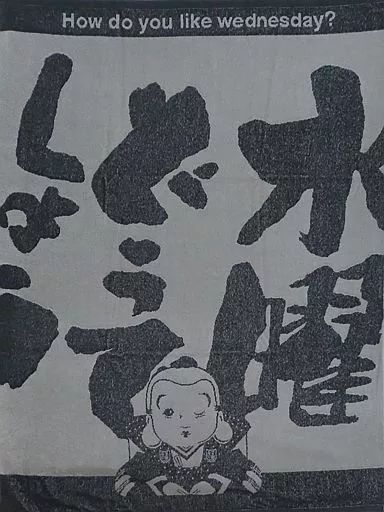 How do you like wednesday?
水曜
どうで
しょう